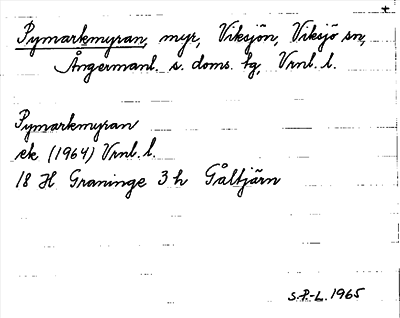 Pymarkmyran, myr, Viksjön, Viksjö sn,
Ångermanl. s. doms. hg, Vrnl. l.
Pymarkmyran
ek (1964) Vrnl. l.
18 H Graninge 3 h Gåltjärn
S.P.-L. 1965